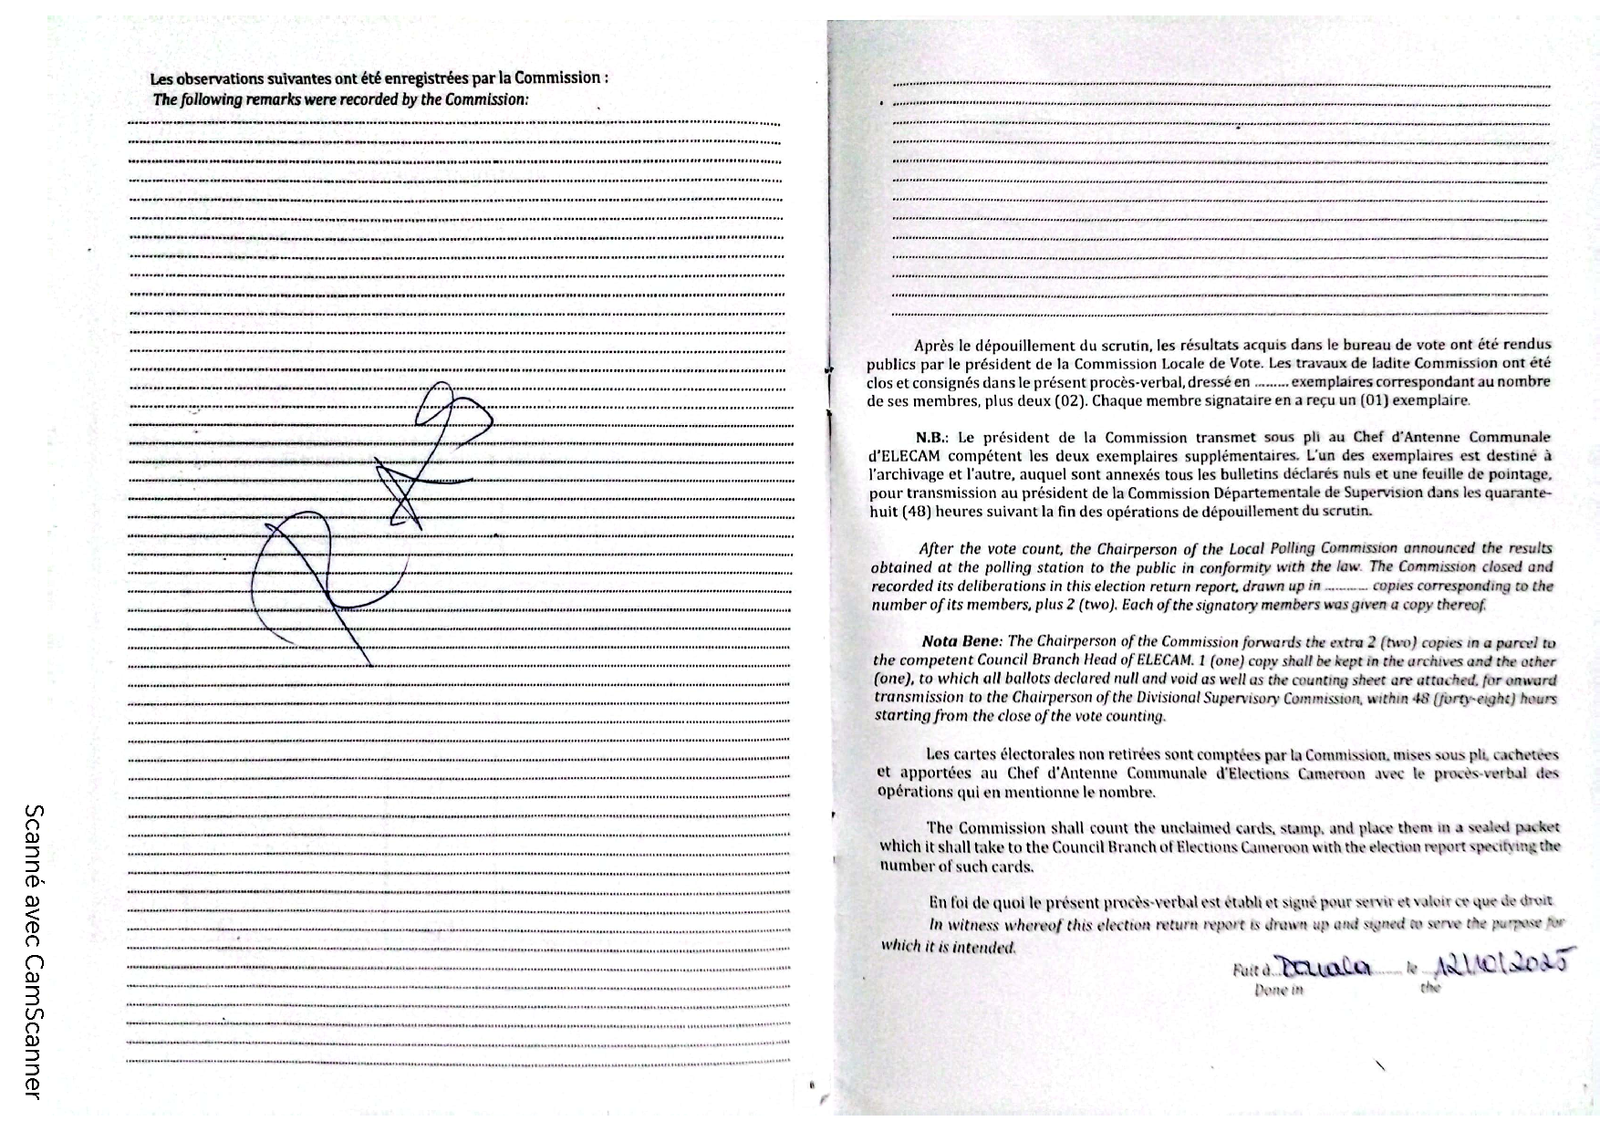 Les observations suivantes ont été enregistrées par la Commission :
The following remarks were recorded by the Commission:
Après le dépouillement du scrutin, les résultats acquis dans le bureau de vote ont été rendus
publics par le président de la Commission Locale de Vote. Les travaux de ladite Commission ont été
clos et consignés dans le présent procès-verbal, dressé en ......... exemplaires correspondant au nombre
de ses membres, plus deux (02). Chaque membre signataire en a reçu un (01) exemplaire.
N.B.: Le président de la Commission transmet sous pli au Chef d'Antenne Communale
d'ELECAM compétent les deux exemplaires supplémentaires. L'un des exemplaires est destiné à
l'archivage et l'autre, auquel sont annexés tous les bulletins déclarés nuls et une feuille de pointage,
pour transmission au président de la Commission Départementale de Supervision dans les quarante-
huit (48) heures suivant la fin des opérations de dépouillement du scrutin.
After the vote count, the Chairperson of the Local Polling Commission announced the results
obtained at the polling station to the public in conformity with the law. The Commission closed and
recorded its deliberations in this election return report, drawn up in ........... copies corresponding to the
number of its members, plus 2 (two). Each of the signatory members was given a copy thereof.
Nota Bene: The Chairperson of the Commission forwards the extra 2 (two) copies in a parcel to
the competent Council Branch Head of ELECAM. 1 (one) copy shall be kept in the archives and the other
(one), to which all ballots declared null and void as well as the counting sheet are attached, for onward
transmission to the Chairperson of the Divisional Supervisory Commission, within 48 (forty-eight) hours
starting from the close of the vote counting.
Les cartes électorales non retirées sont comptées par la Commission, mises sous pli, cachetées
et apportées au Chef d'Antenne Communale d'Elections Cameroon avec le procès-verbal des
opérations qui en mentionne le nombre.
The Commission shall count the unclaimed cards, stamp, and place them in a sealed packet
which it shall take to the Council Branch of Elections Cameroon with the election report specifying the
number of such cards.
En foi de quoi le présent procès-verbal est établi et signé pour servir et valoir ce que de droit.
In witness whereof this election return report is drawn up and signed to serve the purpose for
which it is intended.
Fait à Douala le 12/10/2025
Done in the
Scanné avec CamScanner